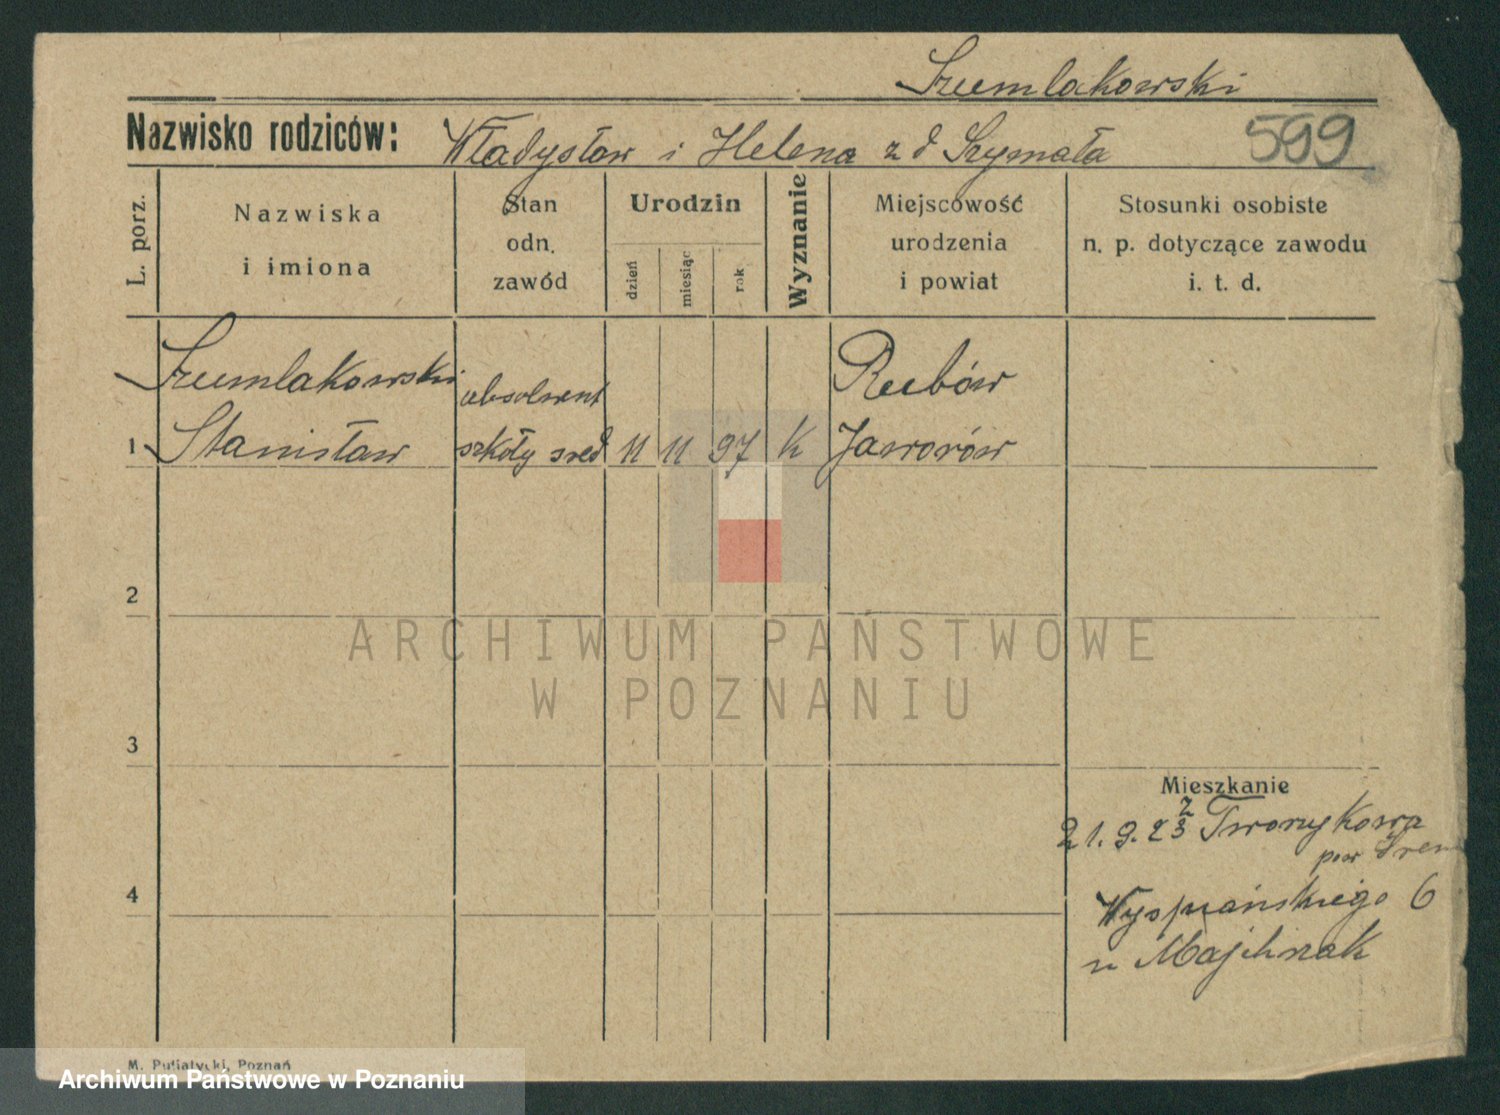 Szumlakowski
Nazwisko rodziców: Władysław i Helena z d Szymała
599
L. porz.
Nazwiska
i imiona
Stan
odn.
zawód
Urodzin
dzień
miesiąc
rok
Wyznanie
Miejscowość
urodzenia
i powiat
Stosunki osobiste
n. p. dotyczące zawodu
i. t. d.
Szumlakowski absolwent Rubów
1 Stanisław szkoły śred 11 11 97 K Jaworów
2
ARCHIWUM PAŃSTWOWE
W POZNANIU
3
Mieszkanie
21.9.23 z
pow Śrem
4
Wyspiańskiego 6
u
M. Putiatycki, Poznań
Archiwum Państwowe w Poznaniu